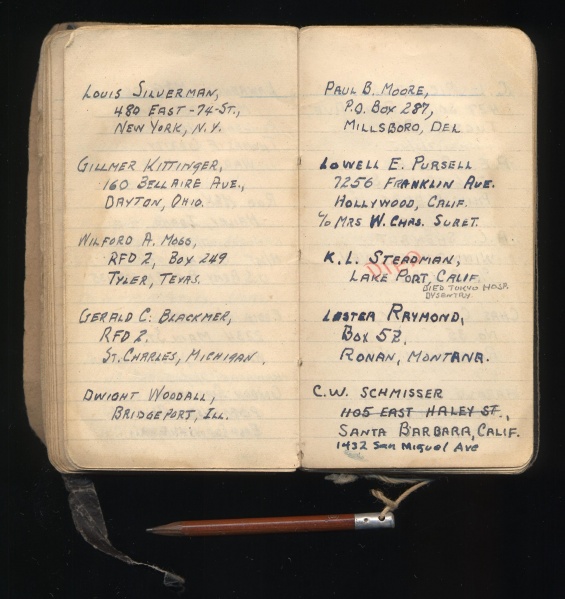 Louis Silverman,
480 East-74-St.,
New York, N.Y.
Gillmer Kittinger,
160 Bellaire Ave.,
Dayton, Ohio.
Wilford A. Mobo,
RFD 2, Box 249
Tyler, Texas.
Gerald C. Blackmer,
RFD 2.
St. Charles, Michigan.
Dwight Woodall,
Bridgeport, Ill.
Paul B. Moore,
P.O. Box 287,
Millsboro, Del.
Lowell E. Pursell
7256 Franklin Ave.
Hollywood, Calif.
c/o Mrs W. Chas. Suret.
K.L. Steadman,
Died
Lake Port, Calif.
Died Tokyo Hosp.
Dysentry
Lester Raymond,
Box 52,
Ronan, Montana.
C.W. Schmisser
1105 East Haley St.,
Santa Barbara, Calif.
1432 San Miguel Ave